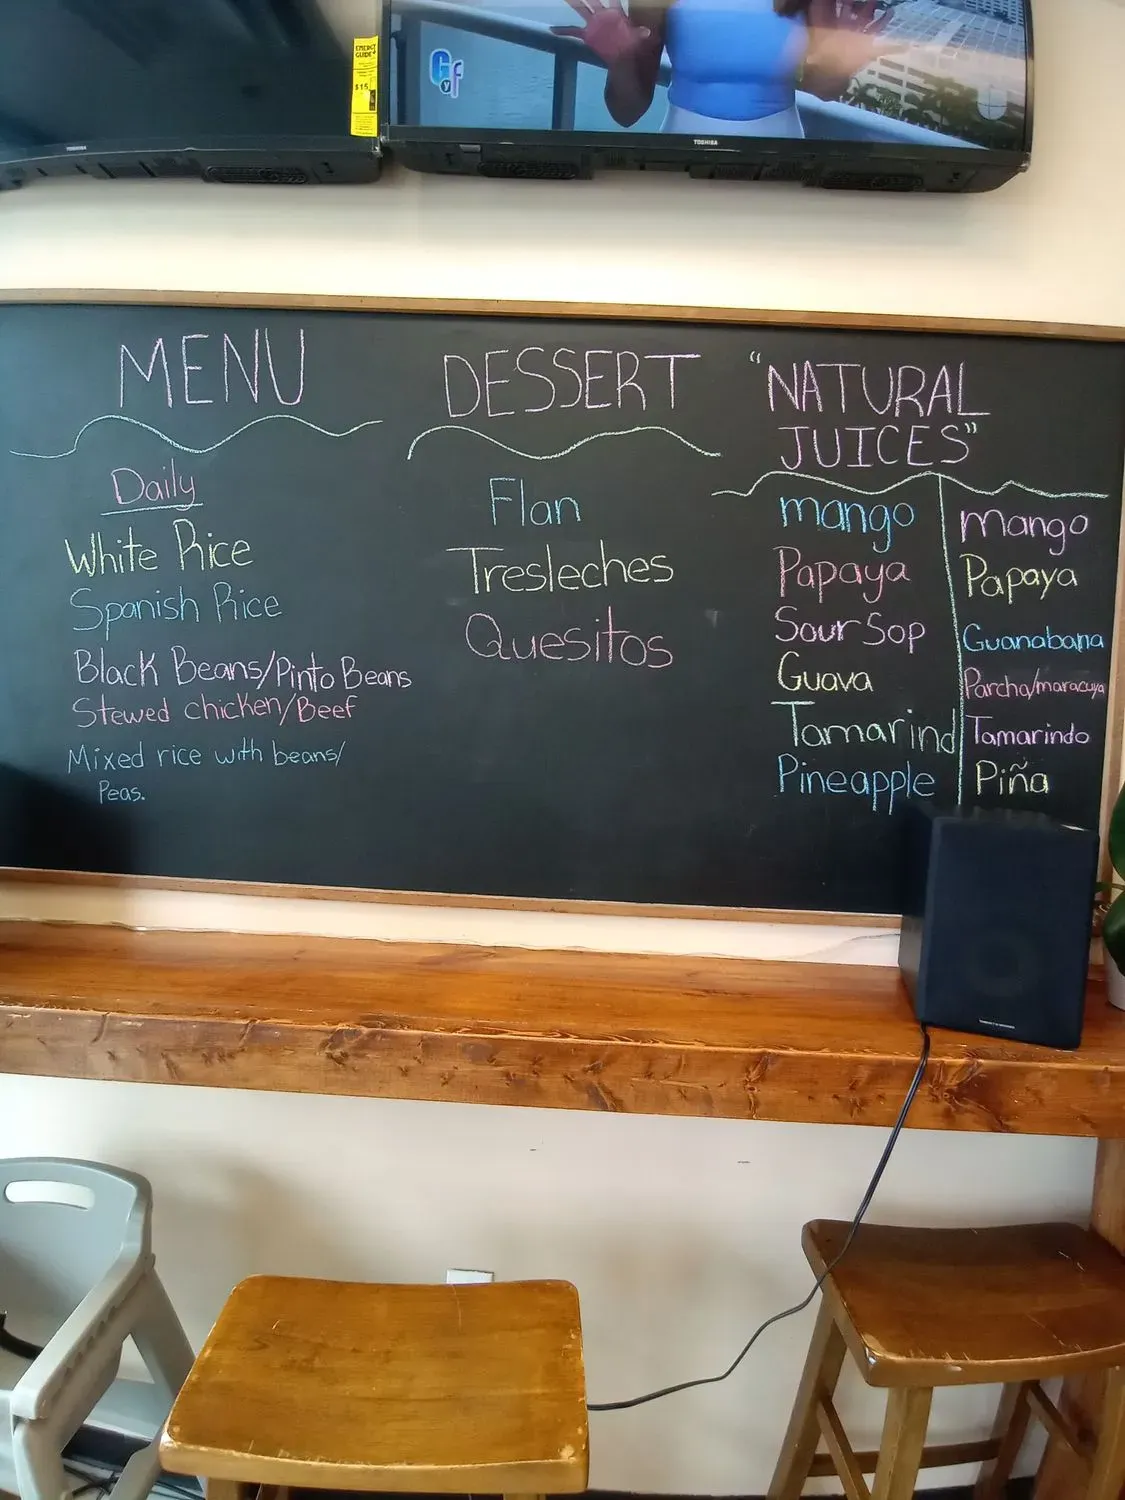 ENERGY
GUIDE
$15
TOSHIBA
G y f
TOSHIBA
MENU
Daily
White Rice
Spanish Rice
Black Beans/Pinto Beans
Stewed chicken/Beef
Mixed rice with beans/
Peas.
DESSERT
Flan
Tresleches
Quesitos
"NATURAL
JUICES"
mango
Papaya
Sour Sop
Guava
Tamarind
Pineapple
mango
Papaya
Guanabana
Parcha/maracuya
Tamarindo
Piña